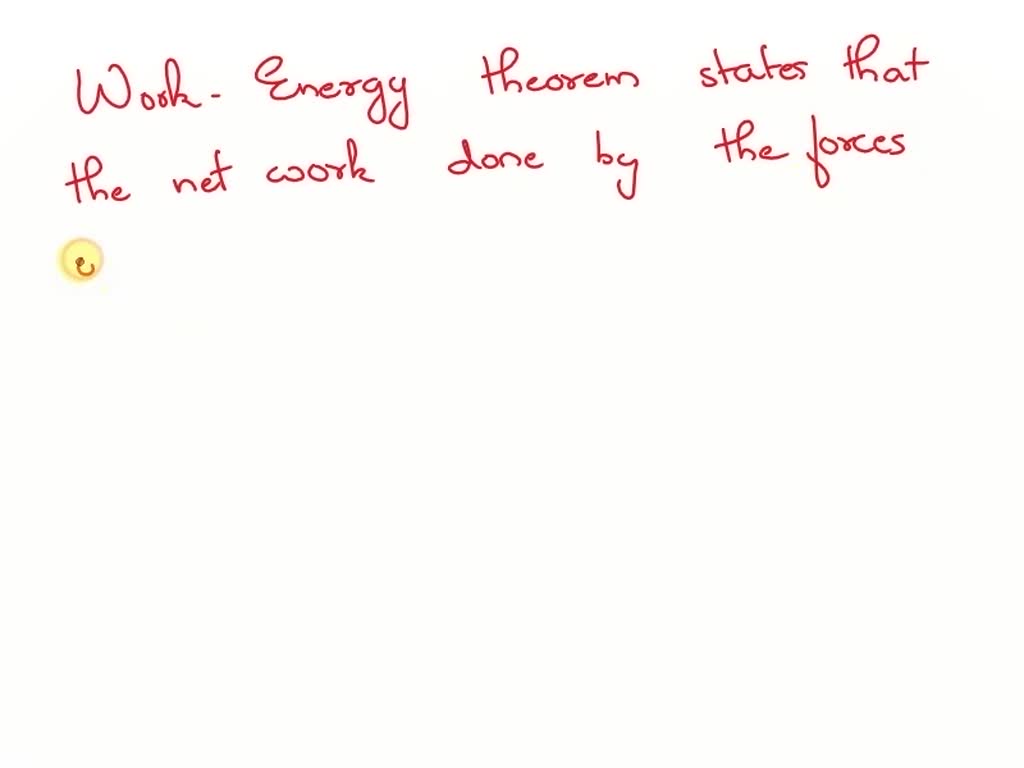 Work - Energy theorem states that
the net work done by the forces